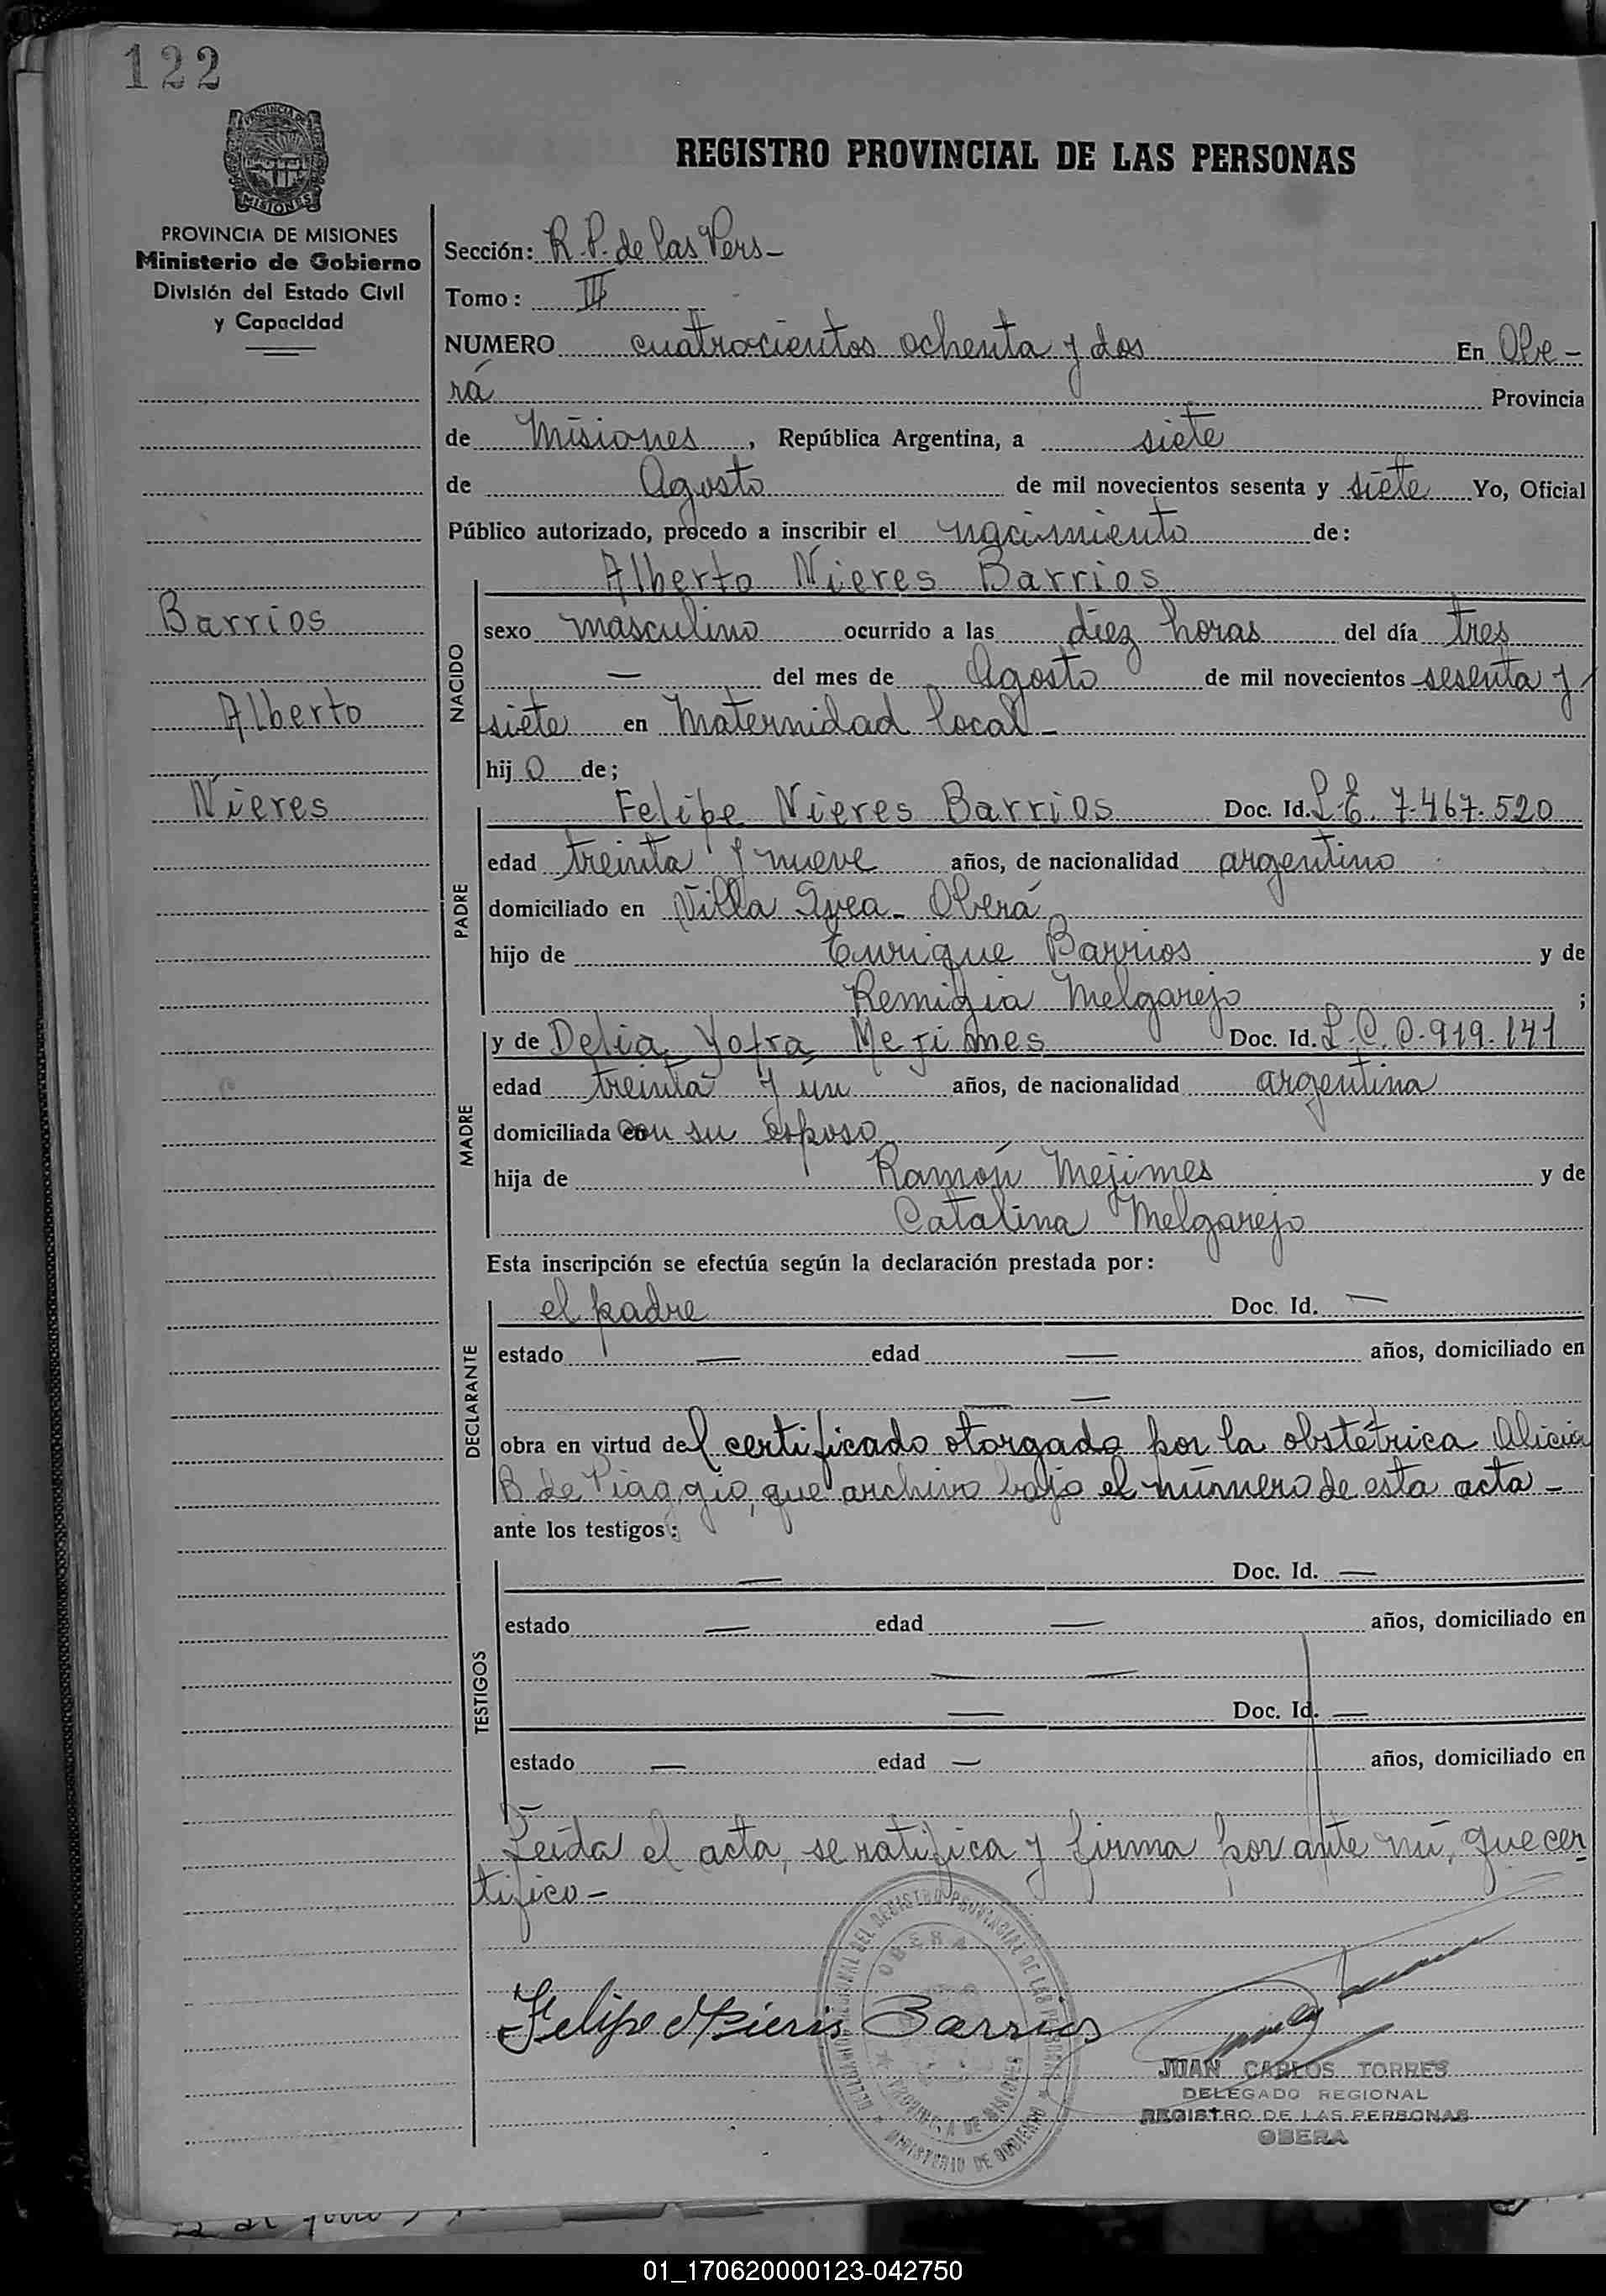 122
PROVINCIA DE MISIONES
Ministerio de Gobierno
División del Estado Civil
y Capacidad
Barrios
Alberto
Nieres
REGISTRO PROVINCIAL DE LAS PERSONAS
Sección: R.P. de las Pers-
Tomo: III
NUMERO cuatrocientos ochenta y dos En Obe-
rá Provincia
de Misiones, República Argentina, a siete
de Agosto de mil novecientos sesenta y siete Yo, Oficial
Público autorizado, procedo a inscribir el nacimiento de:
Alberto Nieres Barrios
NACIDO
sexo masculino ocurrido a las diez horas del día tres
— del mes de Agosto de mil novecientos sesenta y
siete en Maternidad local-
hijo de;
PADRE
Felipe Nieres Barrios Doc. Id. L.E. 7.467.520
edad treinta y nueve años, de nacionalidad argentino
domiciliado en Villa Svea- Oberá
hijo de Enrique Barrios y de
Remigia Melgarejo ;
MADRE
y de Delia Yofra Mejimes Doc. Id. L.C. 0.919.141
edad treinta y un años, de nacionalidad argentina
domiciliada con su esposo
hija de Ramón Mejimes y de
Catalina Melgarejo
Esta inscripción se efectúa según la declaración prestada por:
DECLARANTE
el padre Doc. Id. —
estado — edad — años, domiciliado en
— —
obra en virtud del certificado otorgado por la obstétrica Alicia
B de Piaggio, que archivo bajo el número de esta acta -
ante los testigos:
TESTIGOS
— Doc. Id. —
estado — edad — años, domiciliado en
— —
— Doc. Id. —
estado — edad — años, domiciliado en
Leída el acta, se ratifica y firma por ante mí, que cer
tifico -
Felipe Nieris Barrios
DELEGACION REGIONAL DEL REGISTRO PROVINCIAL DE LAS PERSONAS
OBERA
PROVINCIA DE MISIONES
MINISTERIO DE GOBIERNO
JUAN CARLOS TORRES
DELEGADO REGIONAL
REGISTRO DE LAS PERSONAS
OBERA
01_170620000123-042750